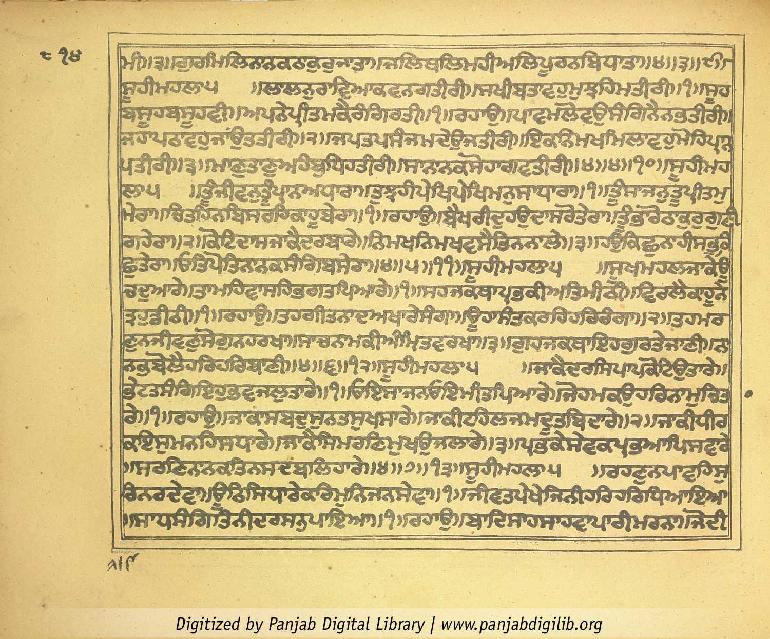 ੮੧੪
ਮੀ॥੩॥ਗੁਰਮਿਲਿਨਾਨਕਠਾਕੁਰੁਜਾਤਾ॥ਜਲਿਥਲਿਮਹੀਅਲਿਪੂਰਨਬਿਧਾਤਾ॥੪॥੩॥੯॥
ਸੂਹੀਮਹਲਾ੫ ॥ਲਾਲਨੁਰਾਵਿਆਕਵਨਗਤੀਰੀ॥ਸਖੀਬਤਾਵਹੁਮੁਝਹਿਮਤੀਰੀ॥੧॥ਸੂਹ
ਬਸੂਹਬਸੂਹਵੀ॥ਅਪਨੇਪ੍ਰੀਤਮਕੈਰੰਗਿਰਤੀ॥੧॥ਰਹਾਉ॥ਪਾਵਮਲੋਵਉਸੰਗਿਨੈਨਭਤੀਰੀ॥
ਜਹਾਪਠਾਵਹੁਜਾਂਉਤਤੀਰੀ॥੨॥ਜਪਤਪਸੰਜਮਦੇਉਜਤੀਰੀ॥ਇਕਨਿਮਖਮਿਲਾਵਹੁਮੋਹਿਪ੍ਰਾਨ
ਪਤੀਰੀ॥੩॥ਮਾਣੁਤਾਣੁਅਹੰਬੁਧਿਹਤੀਰੀ॥ਸਾਨਾਨਕਸੋਹਾਗਵਤੀਰੀ॥੪॥੪॥੧੦॥ਸੂਹੀਮਹ
ਲਾ੫ ॥ਤੂੰਜੀਵਨੁਤੂੰਪ੍ਰਾਨਅਧਾਰਾ॥ਤੁਝਹੀਪੇਖਿਪੇਖਿਮਨੁਸਾਧਾਰਾ॥੧॥ਤੂੰਸਾਜਨੁਤੂੰਪ੍ਰੀਤਮੁ
ਮੇਰਾ॥ਚਿਤਹਿਨਬਿਸਰਹਿਕਾਹੂਬੇਰਾ॥੧॥ਰਹਾਉ॥ਬੈਖਰੀਦੁਹਉਦਾਸਰੋਤੇਰਾ॥ਤੂੰਭਾਰੋਠਾਕੁਰੁਗੁਣੀ
ਗਹੇਰਾ॥੨॥ਕੋਟਿਦਾਸਜਾਕੈਦਰਬਾਰੇ॥ਨਿਮਖਨਿਮਖਵਸੈਤਿਨਨਾਲੇ॥੩॥ਹਉਕਿਛੁਨਾਹੀਸਭੁਕਿ
ਛੁਤੇਰਾ॥ਓਤਿਪੋਤਿਨਾਨਕਸੰਗਿਬਸੇਰਾ॥੪॥੫॥੧੧॥ਸੂਹੀਮਹਲਾ੫ ॥ਸੂਖਮਹਲਜਾਕੇਊ
ਚਦੁਆਰੇ॥ਤਾਮਹਿਵਾਸਹਿਭਗਤਪਿਆਰੇ॥੧॥ਸਹਜਕਥਾਪ੍ਰਭਕੀਅਤਿਮੀਠੀ॥ਵਿਰਲੈਕਾਹੂਨੇ
ਤ੍ਰਹੁਡੀਠੀ॥੧॥ਰਹਾਉ॥ਤਹਗੀਤਨਾਦਅਖਾਰੇਸੰਗਾ॥ਊਹਾਸੰਤਕਰਹਿਹਰਿਰੰਗਾ॥੨॥ਤਹਮਰ
ਣੁਨਜੀਵਣੁਸੋਗੁਨਹਰਖਾ॥ਸਾਚਨਾਮਕੀਅੰਮ੍ਰਿਤਵਰਖਾ॥੩॥ਗੁਹਜਕਥਾਇਹਗੁਰਤੇਜਾਣੀ॥ਨਾ
ਨਕੁਬੋਲੈਹਰਿਹਰਿਬਾਣੀ॥੪॥੬॥੧੨॥ਸੂਹੀਮਹਲਾ੫ ॥ਜਾਕੈਦਰਸਿਪਾਪਕੋਟਿਉਤਾਰੇ॥
ਭੇਟਤਸੰਗਿਇਹੁਭਵਜਲੁਤਾਰੇ॥੧॥ਓਇਸਾਜਨਓਇਮੀਤਪਿਆਰੇ॥ਜੋਹਮਕਉਹਰਿਨਾਮੁਚਿਤਾ
ਰੇ॥੧॥ਰਹਾਉ॥ਜਾਕਾਸਬਦੁਸੁਨਤਸੁਖਸਾਰੇ॥ਜਾਕੀਟਹਲਜਮਦੂਤਬਿਦਾਰੇ॥੨॥ਜਾਕੀਧੀਰ
ਕਇਸੁਮਨਹਿਸਧਾਰੇ॥ਜਾਕੈਸਿਮਰਣਿਮੁਖਉਜਲਾਰੇ॥੩॥ਪ੍ਰਭਕੇਸੇਵਕਪ੍ਰਭਿਆਪਿਸਵਾਰੇ
॥ਸਰਣਿਨਾਨਕਤਿਨਸਦਬਲਿਹਾਰੇ॥੪॥੭॥੧੩॥ਸੂਹੀਮਹਲਾ੫ ॥ਰਹਣੁਨਪਾਵਹਿਸੁ
ਰਿਨਰਦੇਵਾ॥ਊਠਿਸਿਧਾਰੇਕਰਿਮੁਨਿਜਨਸੇਵਾ॥੧॥ਜੀਵਤਪੇਖੇਜਿਨੀਹਰਿਹਰਿਧਿਆਇਆ
॥ਸਾਧਸੰਗਿਤਿਨੀਦਰਸਨੁਪਾਇਆ॥੧॥ਰਹਾਉ॥ਬਾਦਿਸਾਹਸਾਹਵਾਪਾਰੀਮਰਨਾ॥ਜੋਦੀ
Digitized by Panjab Digital Library | www.panjabdigilib.org